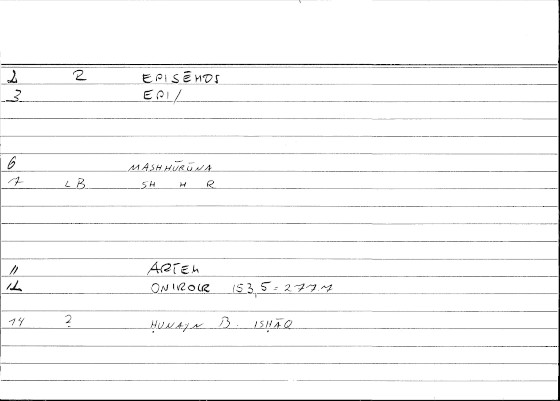 1 2 EPISĒMOS
3 EPI/
6 MASHHŪRŪNA
7 LB SH H R
11 ARTEM
12 ONIROCR 153,5 = 277.7
14 ? ḤUNAYN B. ISḤĀQ